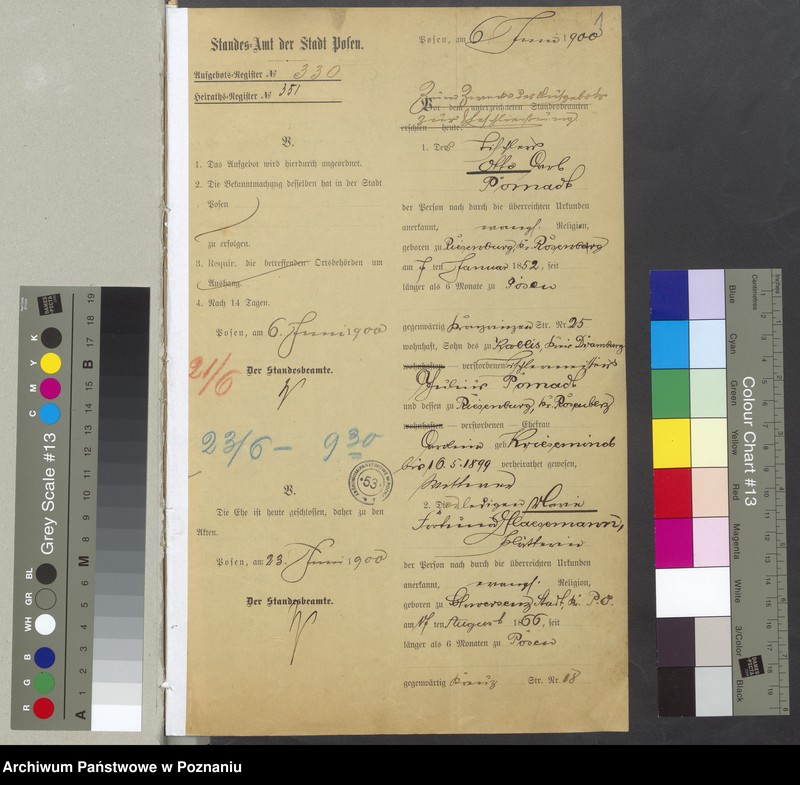 Standes-Amt der Stadt Posen.
Aufgebots-Register № 330
Heiraths-Register № 351
V.
1. Das Aufgebot wird hierdurch angeordnet.
2. Die Bekanntmachung desselben hat in der Stadt
Posen
zu erfolgen.
3. Requir. die betreffenden Ortsbehörden um
Aushang.
4. Nach 14 Tagen.
Posen, am 6. Juni 1900
Der Standesbeamte.
21/6
23/6 - 9 30
V.
Die Ehe ist heute geschlossen, daher zu den
Akten.
Posen, am 23. Juni 1900
Der Standesbeamte.
53
1
Posen, am 6 Juni 1900
Zum Zwecke des Aufgebots
Vor dem unterzeichneten Standesbeamten
zur Eheschließung
erschien heute:
1. Der Tischler
Otto Carl
Pomadt
der Person nach durch die überreichten Urkunden
anerkannt, evangl. Religion,
geboren zu Riesenburg, Kr. Rosenberg
am 7 ten Januar 1852, seit
länger als 6 Monate zu Posen
gegenwärtig Str. Nr. 25
wohnhaft, Sohn des zu Kallis, Kreis Dramburg
wohnhaften — verstorbenen Tischlermeisters
Julius Pomadt
und dessen zu Riesenburg, Kr. Rosenberg
wohnhaften — verstorbenen Ehefrau
geb. Kriesemind
bis 16.5.1899 verheirathet gewesen,
Wittwer
2. Die ledigen Marie
Fortuna Haegemann,
Plätterin
der Person nach durch die überreichten Urkunden
anerkannt, evangl. Religion,
geboren zu Schwersenz Stadt, Kr. P.O.
am 17 ten August 1866, seit
länger als 6 Monaten zu Posen
gegenwärtig Kreuz Str. Nr. 18
Grey Scale #13
C M Y K
R G B WH GR BL
A 1 2 3 4 5 6 M 8 9 10 11 12 13 14 15 B 17 18 19
Colour Chart #13
Blue
Cyan
Green
Yellow
Red
Magenta
White
3/Color
Black
Centimetres
Inches
Archiwum Państwowe w Poznaniu